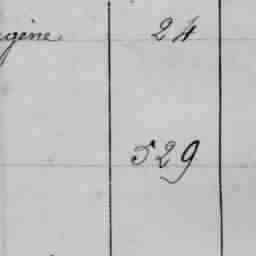 gène 24
529